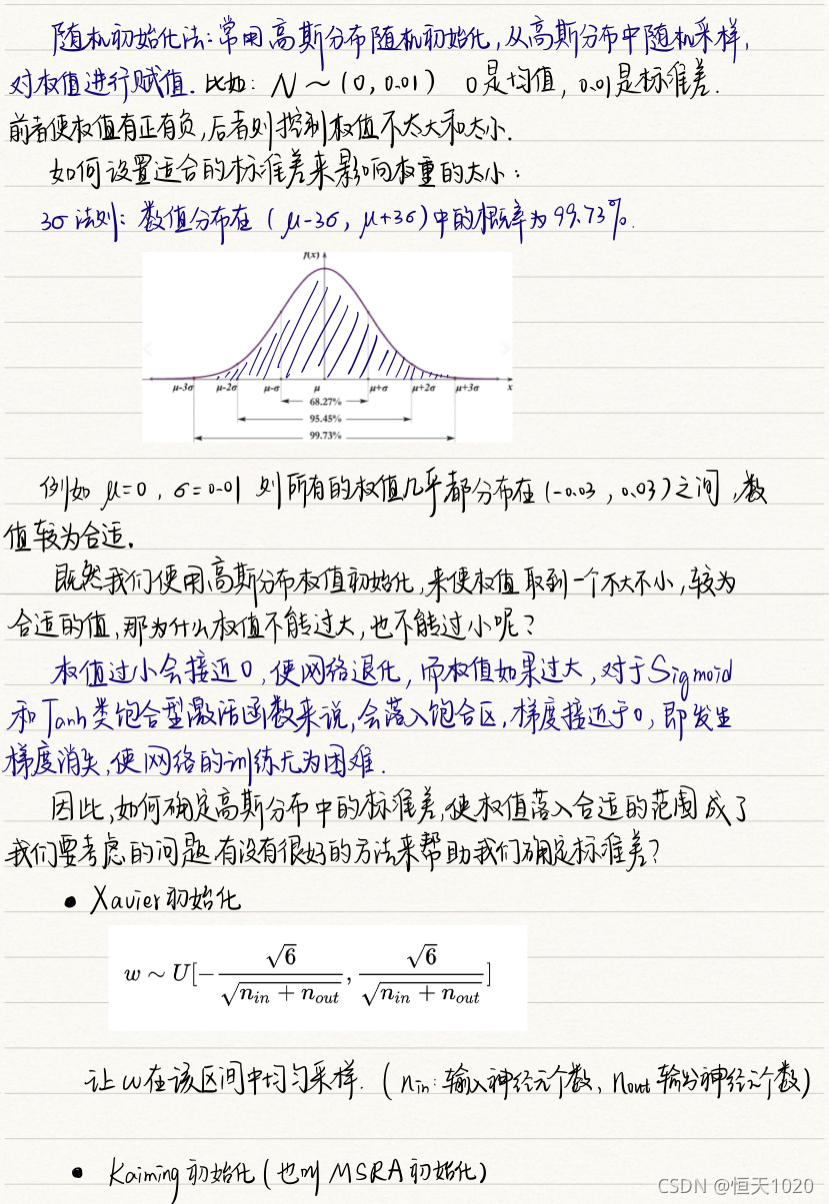 随机初始化法:常用高斯分布随机初始化,从高斯分布中随机采样,
对权值进行赋值. 比如: N ~ (0, 0.01) 0是均值, 0.01是标准差.
前者使权值有正有负,后者则控制权值不太大和太小.
如何设置适合的标准差来影响权重的大小:
3σ法则: 数值分布在 (μ-3σ, μ+3σ) 中的概率为99.73%.
f(x)
μ-3σ μ-2σ μ-σ μ μ+σ μ+2σ μ+3σ x
68.27%
95.45%
99.73%
例如 μ=0, σ=0.01 则所有的权值几乎都分布在 (-0.03, 0.03) 之间,数
值较为合适.
既然我们使用高斯分布权值初始化,来使权值取到一个不大不小,较为
合适的值,那为什么权值不能过大,也不能过小呢?
权值过小会接近0,使网络退化,而权值如果过大,对于Sigmoid
和Tanh类饱合型激活函数来说,会落入饱合区,梯度接近于0,即发生
梯度消失,使网络的训练尤为困难.
因此,如何确定高斯分布中的标准差,使权值落入合适的范围成了
我们要考虑的问题.有没有很好的方法来帮助我们确定标准差?
• Xavier初始化
w ∼ U[−√6/√(n_in + n_out), √6/√(n_in + n_out)]
让w在该区间中均匀采样. (n_in:输入神经元个数、n_out输出神经元个数)
• Kaiming初始化(也叫MSRA初始化)
CSDN @恒天1020